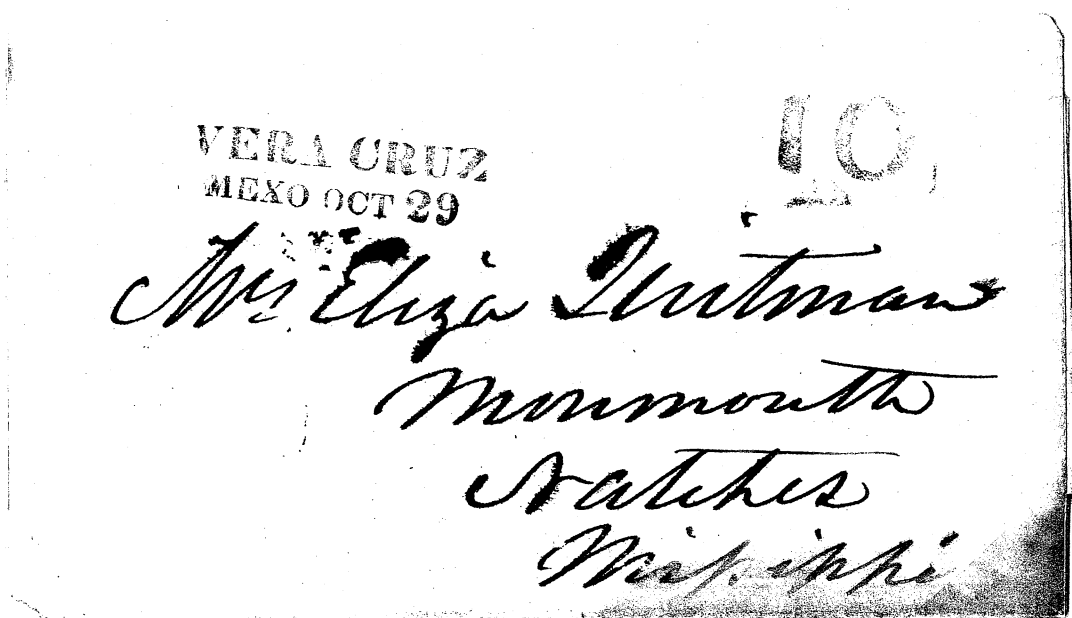 VERA CRUZ
MEXO OCT 29
10
Mrs Eliza Quitman
Monmouth
Natches
Missippi